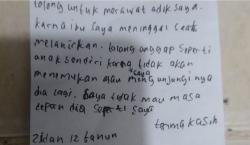 tolong untuk merawat adik saya.
karna ibu saya meninggal saat
melahirkan. tolong anggap seperti
anak sendiri karna tidak akan
menemukan atau saya mengunjunginya
dia lagi. saya tidak mau masa
depan dia seperti saya
terima kasih
Zidan 12 tahun